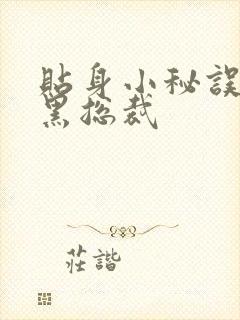 貼身小秘誤
黑总裁
莊諧